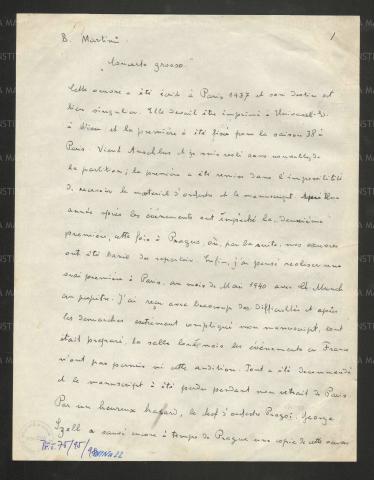 B. Martinů
1
"Concerto grosso"
Cette oeuvre a été écrite à Paris 1937 et son destin est
bien singulier. Elle devait être imprimé à Universal-Ed.
à Wien et la première a été fixé pour la saison 38 à
Paris. Vient Anschluss et je suis resté sans nouvelles de
la partition; la première a été remise dans l'impossibilité
de recevoir le matériel d'orchestre et le manuscript. Après Une
année après les événements ont empêché la deuxième
première, cette fois à Prague, où, par la suite, mes oeuvres
ont été banni du repertoir. Enfin, j'ai pensé realiser une
vrai première à Paris, au mois de Mai 1940 avec Ch. Munch
au pupitre. J'ai reçu avec beaucoup des difficultés et après
les demarches extremement compliqué mon manuscript, tout
était préparé, la salle louée mais les événements en France
n'ont pas permis ni cette audition. Tout a été decommandé
et le manuscript a été perdu pendant mon retrait de Paris.
Par un heureux hazard, le chef d'orchestre George
Szell a sauvé encore à temps de Prague une copie de cette oeuvre